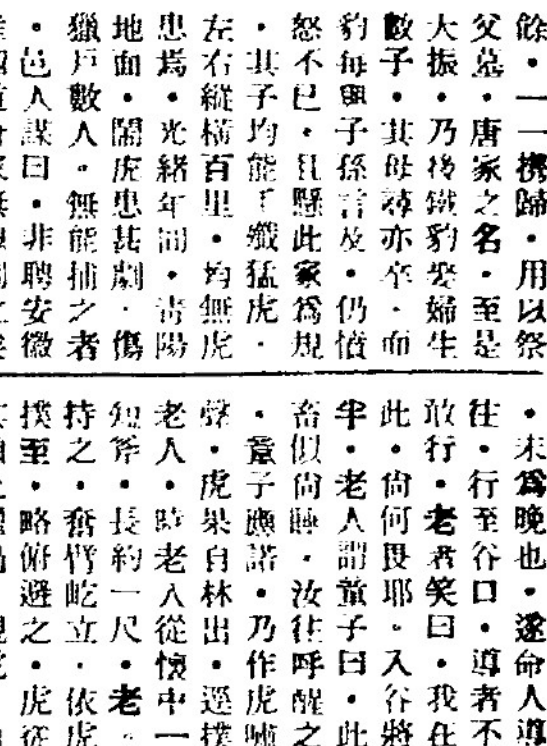 餘・一一携歸・用以祭
父墓・唐家之名・至是
大振・乃後鐵豹娶婦生
數子・其母尋亦卒・而
豹每與子孫言及・仍憤
怒不已・且懸此家爲規
・其子均能手殲猛虎・
左右縱橫百里・均無虎
患焉・光緒年間・靑陽
地面・鬧虎患甚劇・傷
獵戶數人。無能捕之者
・邑人謀曰・非聘安徽
・未爲晚也・遂命人導
往・行至谷口・導者不
敢行・老者笑曰・我在
此・尙何畏耶。入谷將
半・老人謂童子曰・此
畜似尙睡・汝往呼醒之
・童子應諾・乃作虎嘯
聲・虎果自林出・逕撲
老人・時老入從懷中一
短斧・長約一尺・老。
持之・奮臂屹立・依虎
撲至・略俯避之・虎從